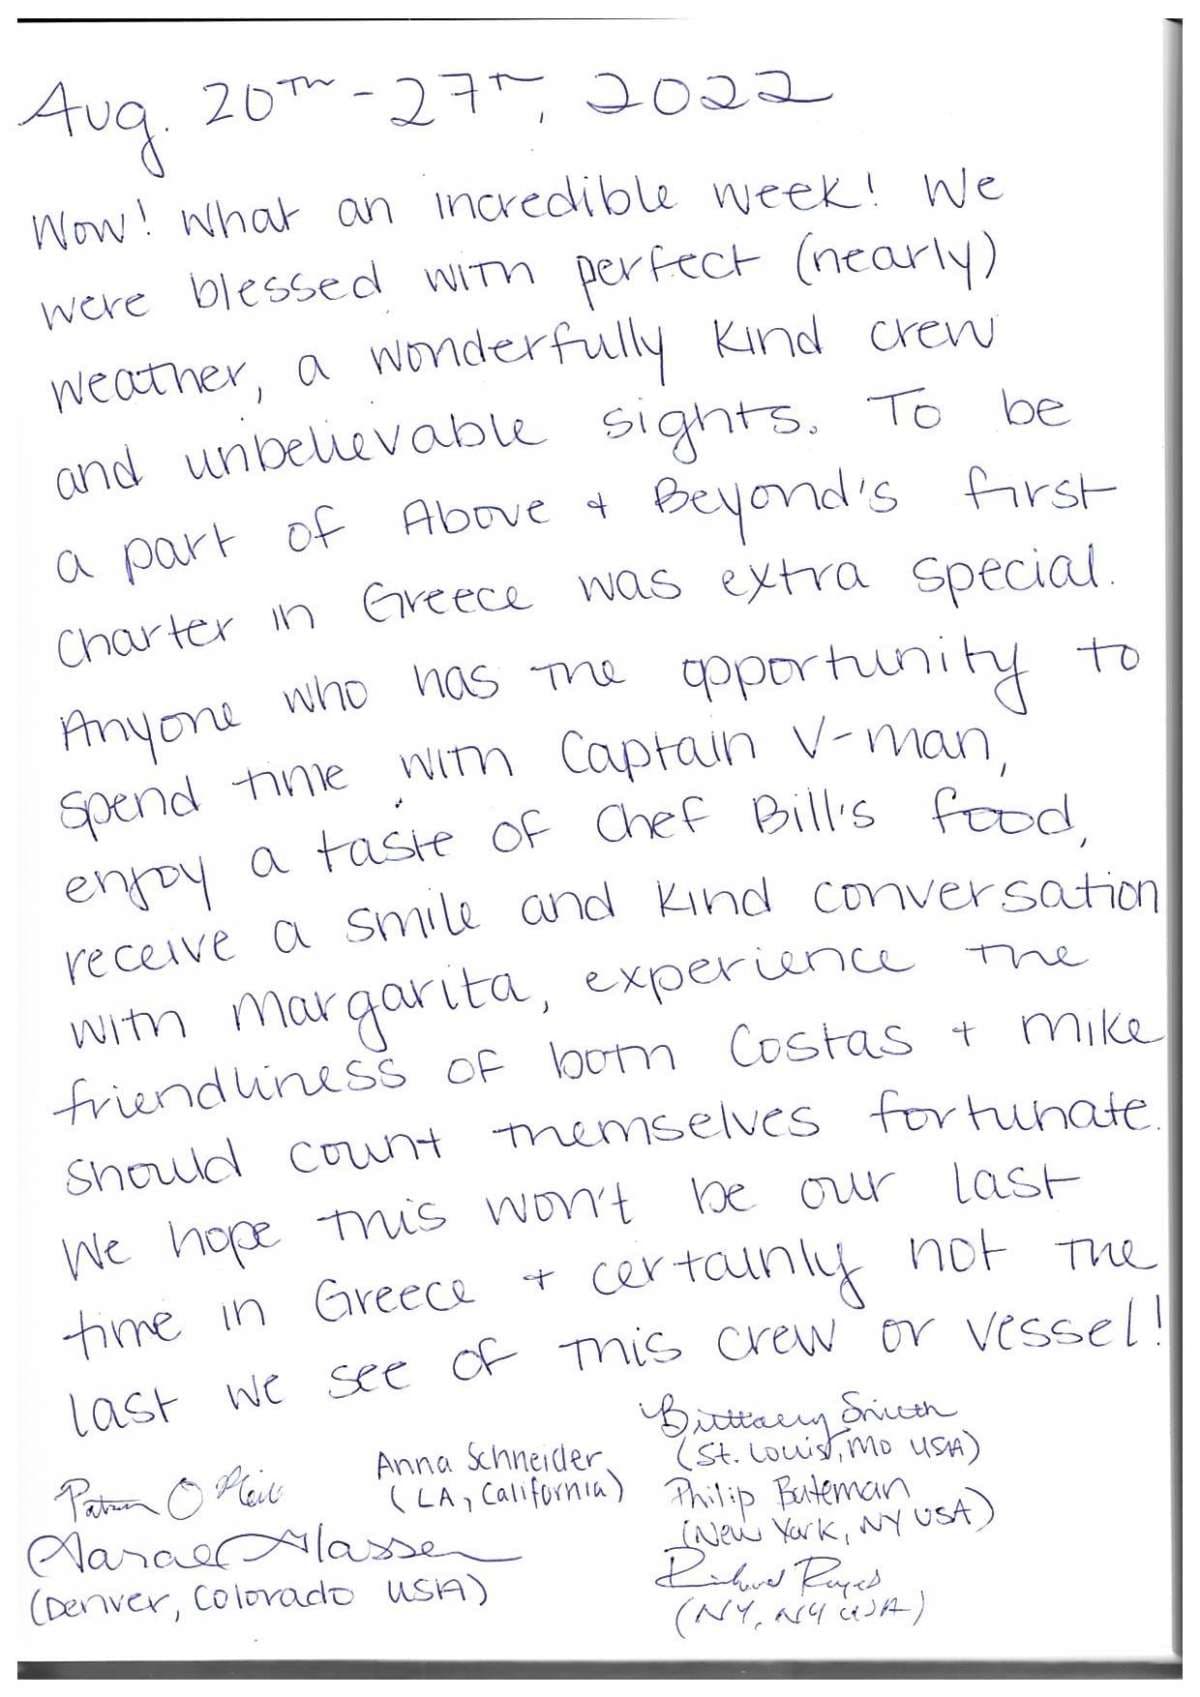 Aug. 20TH - 27TH, 2022
Wow! What an incredible week! We
were blessed with perfect (nearly)
weather, a wonderfully kind crew
and unbelievable sights. To be
a part of Above + Beyond's first
charter in Greece was extra special.
Anyone who has the opportunity to
spend time with Captain V-man,
enjoy a taste of Chef Bill's food,
receive a smile and kind conversation
with Margarita, experience the
friendliness of both Costas + Mike
should count themselves fortunate.
We hope this won't be our last
time in Greece + certainly not the
last we see of this crew or vessel!
Brittany Smith
(St. Louis, MO USA)
Anna Schneider
(LA, California)
Philip Bateman
(New York, NY USA)
(Denver, Colorado USA)
Richard
(NY, NY USA)